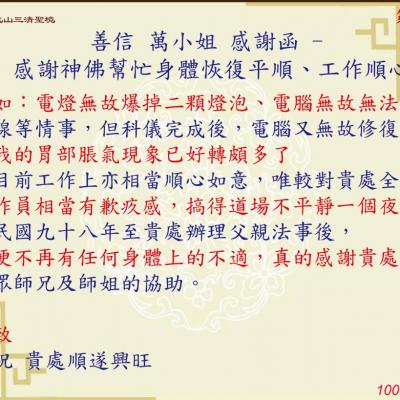 山三清聖境
善信 萬小姐 感謝函 –
感謝神佛幫忙身體恢復平順、工作順心
如：電燈無故爆掉二顆燈泡、電腦無故無法
線等情事，但科儀完成後，電腦又無故修復
我的胃部脹氣現象已好轉頗多了
目前工作上亦相當順心如意，唯較對貴處全
作員相當有歉疚感，搞得道場不平靜一個夜
民國九十八年至貴處辦理父親法事後，
便不再有任何身體上的不適，真的感謝貴處
眾師兄及師姐的協助。
致
祝 貴處順遂興旺
100